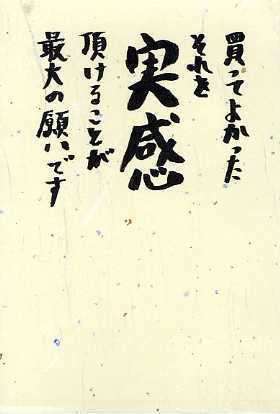 買ってよかった
それを
実感
頂けることが
最大の願いです